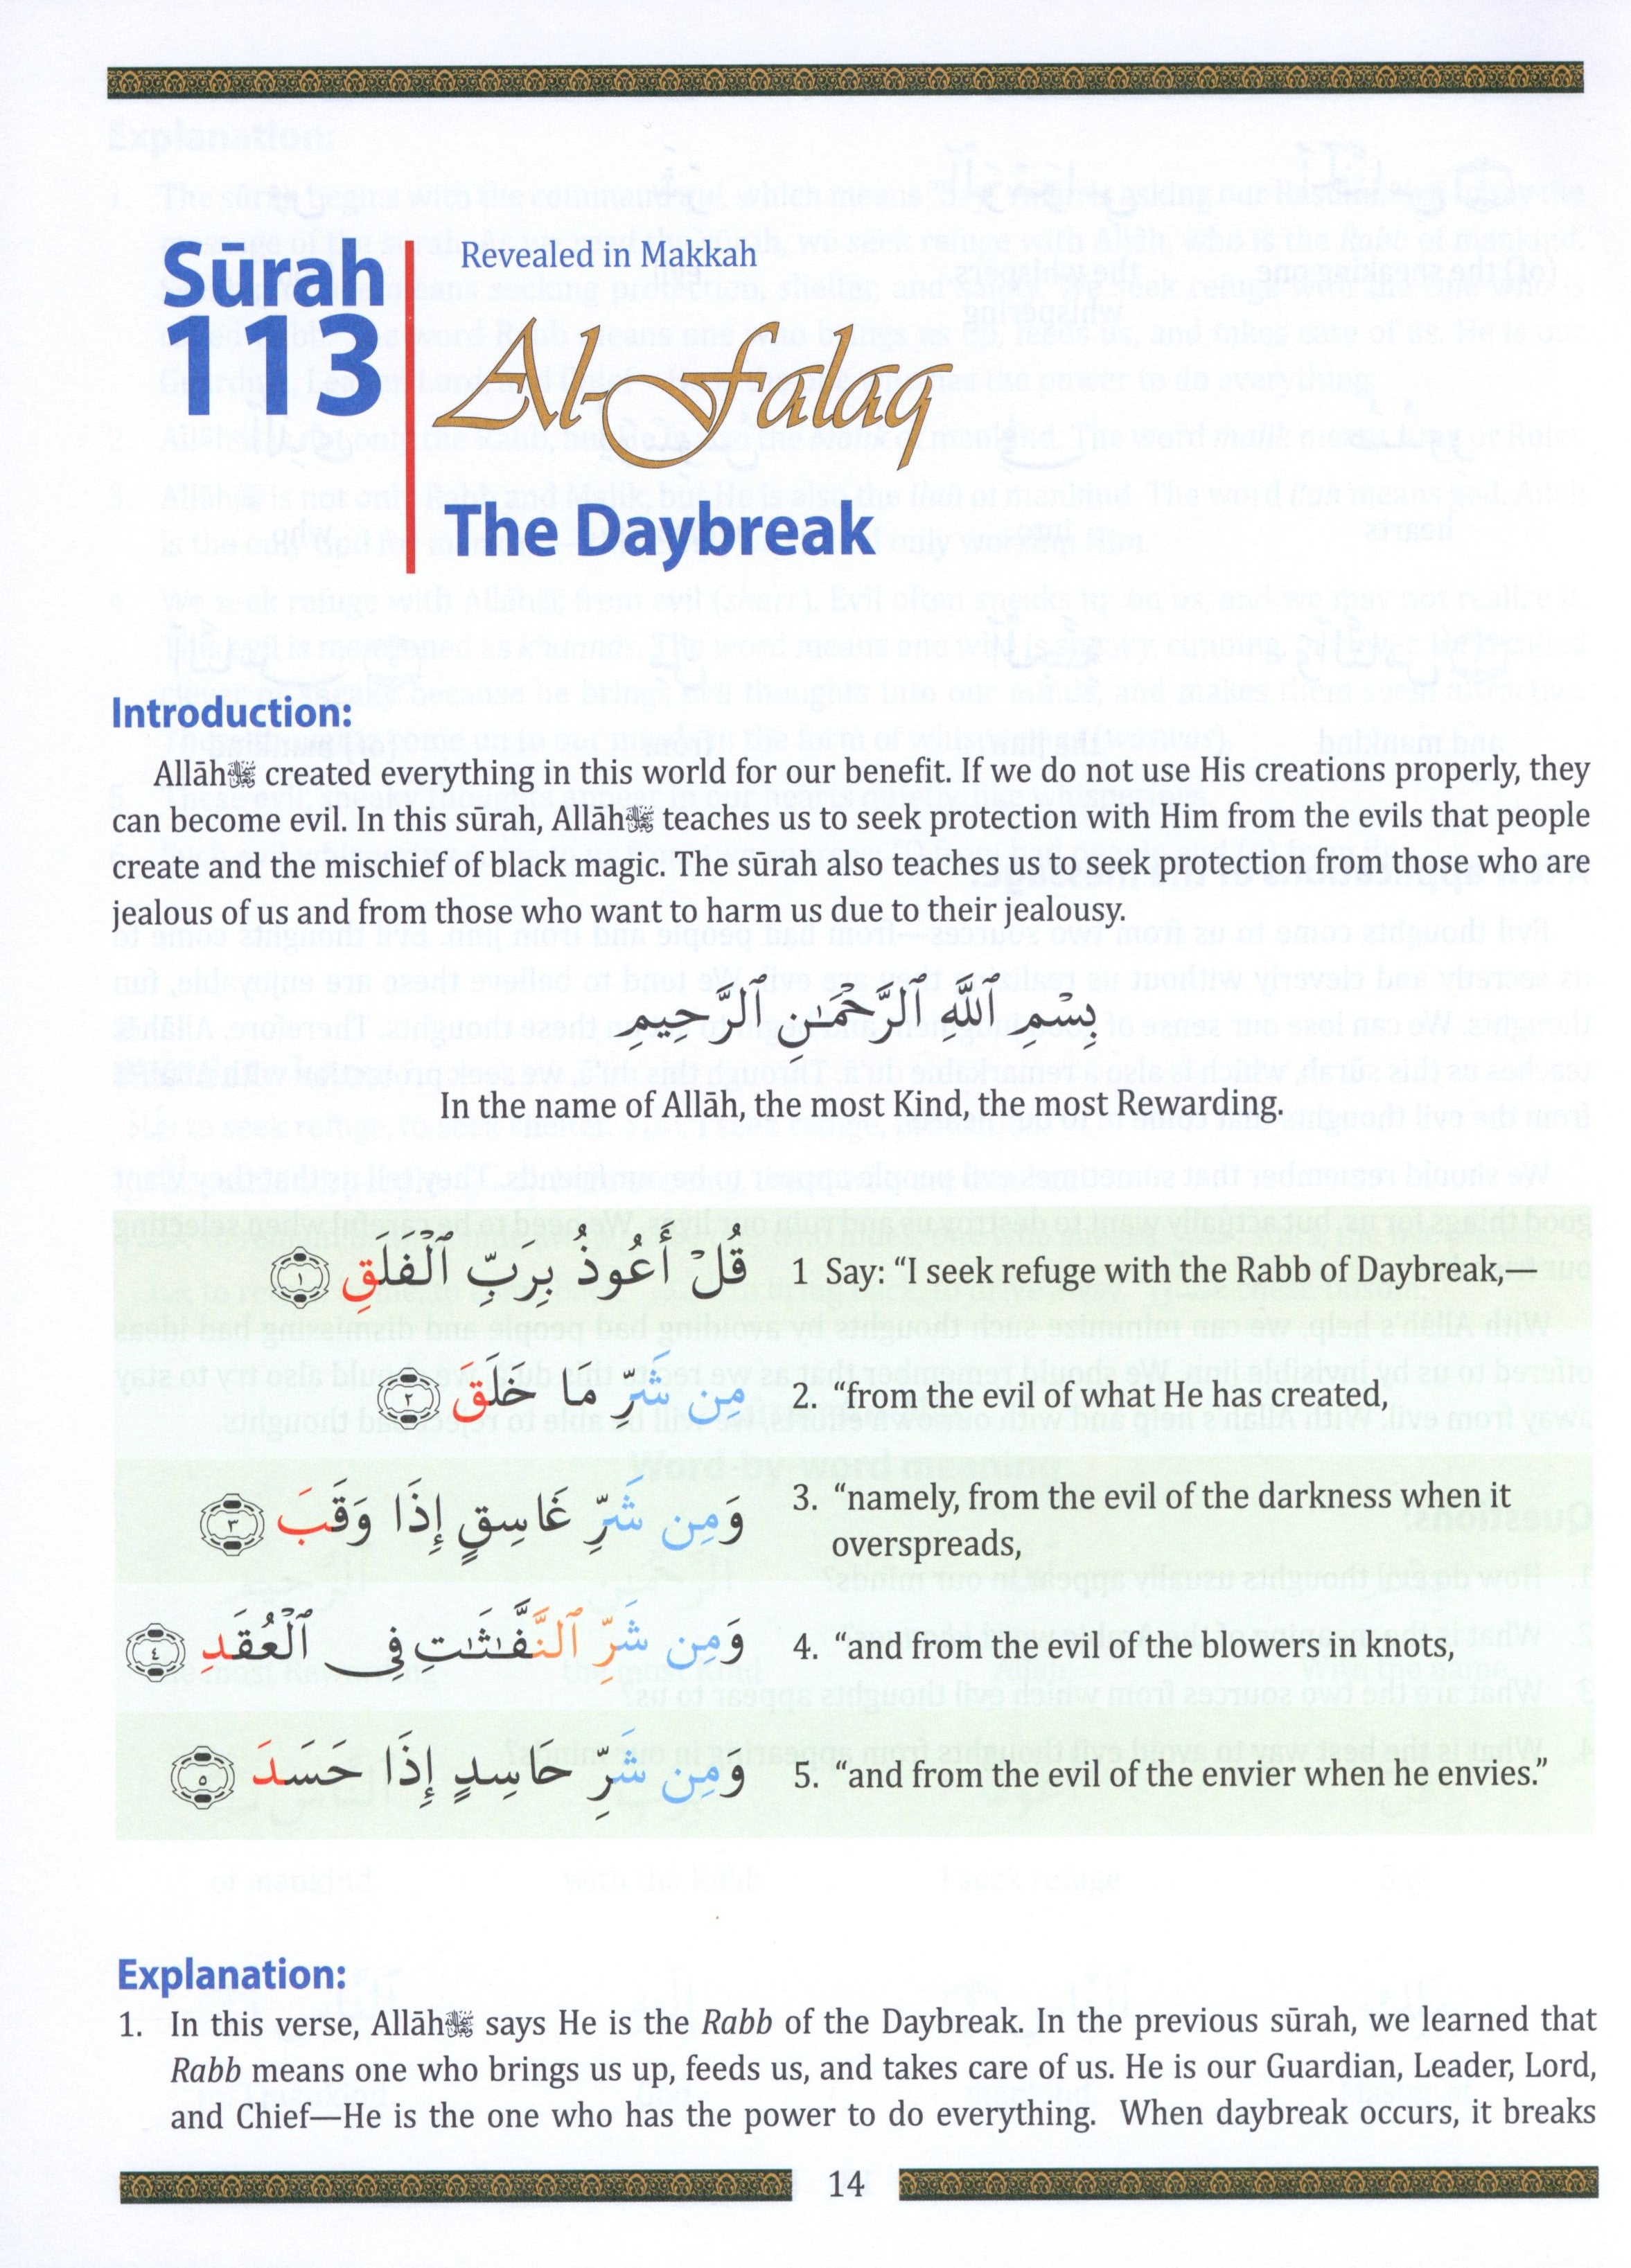 Sūrah
113
Revealed in Makkah
Al-Falaq
The Daybreak
Introduction:
Allāhﷻ created everything in this world for our benefit. If we do not use His creations properly, they
can become evil. In this sūrah, Allāhﷻ teaches us to seek protection with Him from the evils that people
create and the mischief of black magic. The sūrah also teaches us to seek protection from those who are
jealous of us and from those who want to harm us due to their jealousy.
بِسْمِ ٱللَّهِ ٱلرَّحْمَـٰنِ ٱلرَّحِيمِ
In the name of Allāh, the most Kind, the most Rewarding.
قُلْ أَعُوذُ بِرَبِّ ٱلْفَلَقِ ١
1 Say: “I seek refuge with the Rabb of Daybreak,—
مِن شَرِّ مَا خَلَقَ ٢
2. “from the evil of what He has created,
وَمِن شَرِّ غَاسِقٍ إِذَا وَقَبَ ٣
3. “namely, from the evil of the darkness when it
overspreads,
وَمِن شَرِّ ٱلنَّفَّـٰثَـٰتِ فِى ٱلْعُقَدِ ٤
4. “and from the evil of the blowers in knots,
وَمِن شَرِّ حَاسِدٍ إِذَا حَسَدَ ٥
5. “and from the evil of the envier when he envies.”
Explanation:
1. In this verse, Allāhﷻ says He is the Rabb of the Daybreak. In the previous sūrah, we learned that
Rabb means one who brings us up, feeds us, and takes care of us. He is our Guardian, Leader, Lord,
and Chief—He is the one who has the power to do everything. When daybreak occurs, it breaks
14